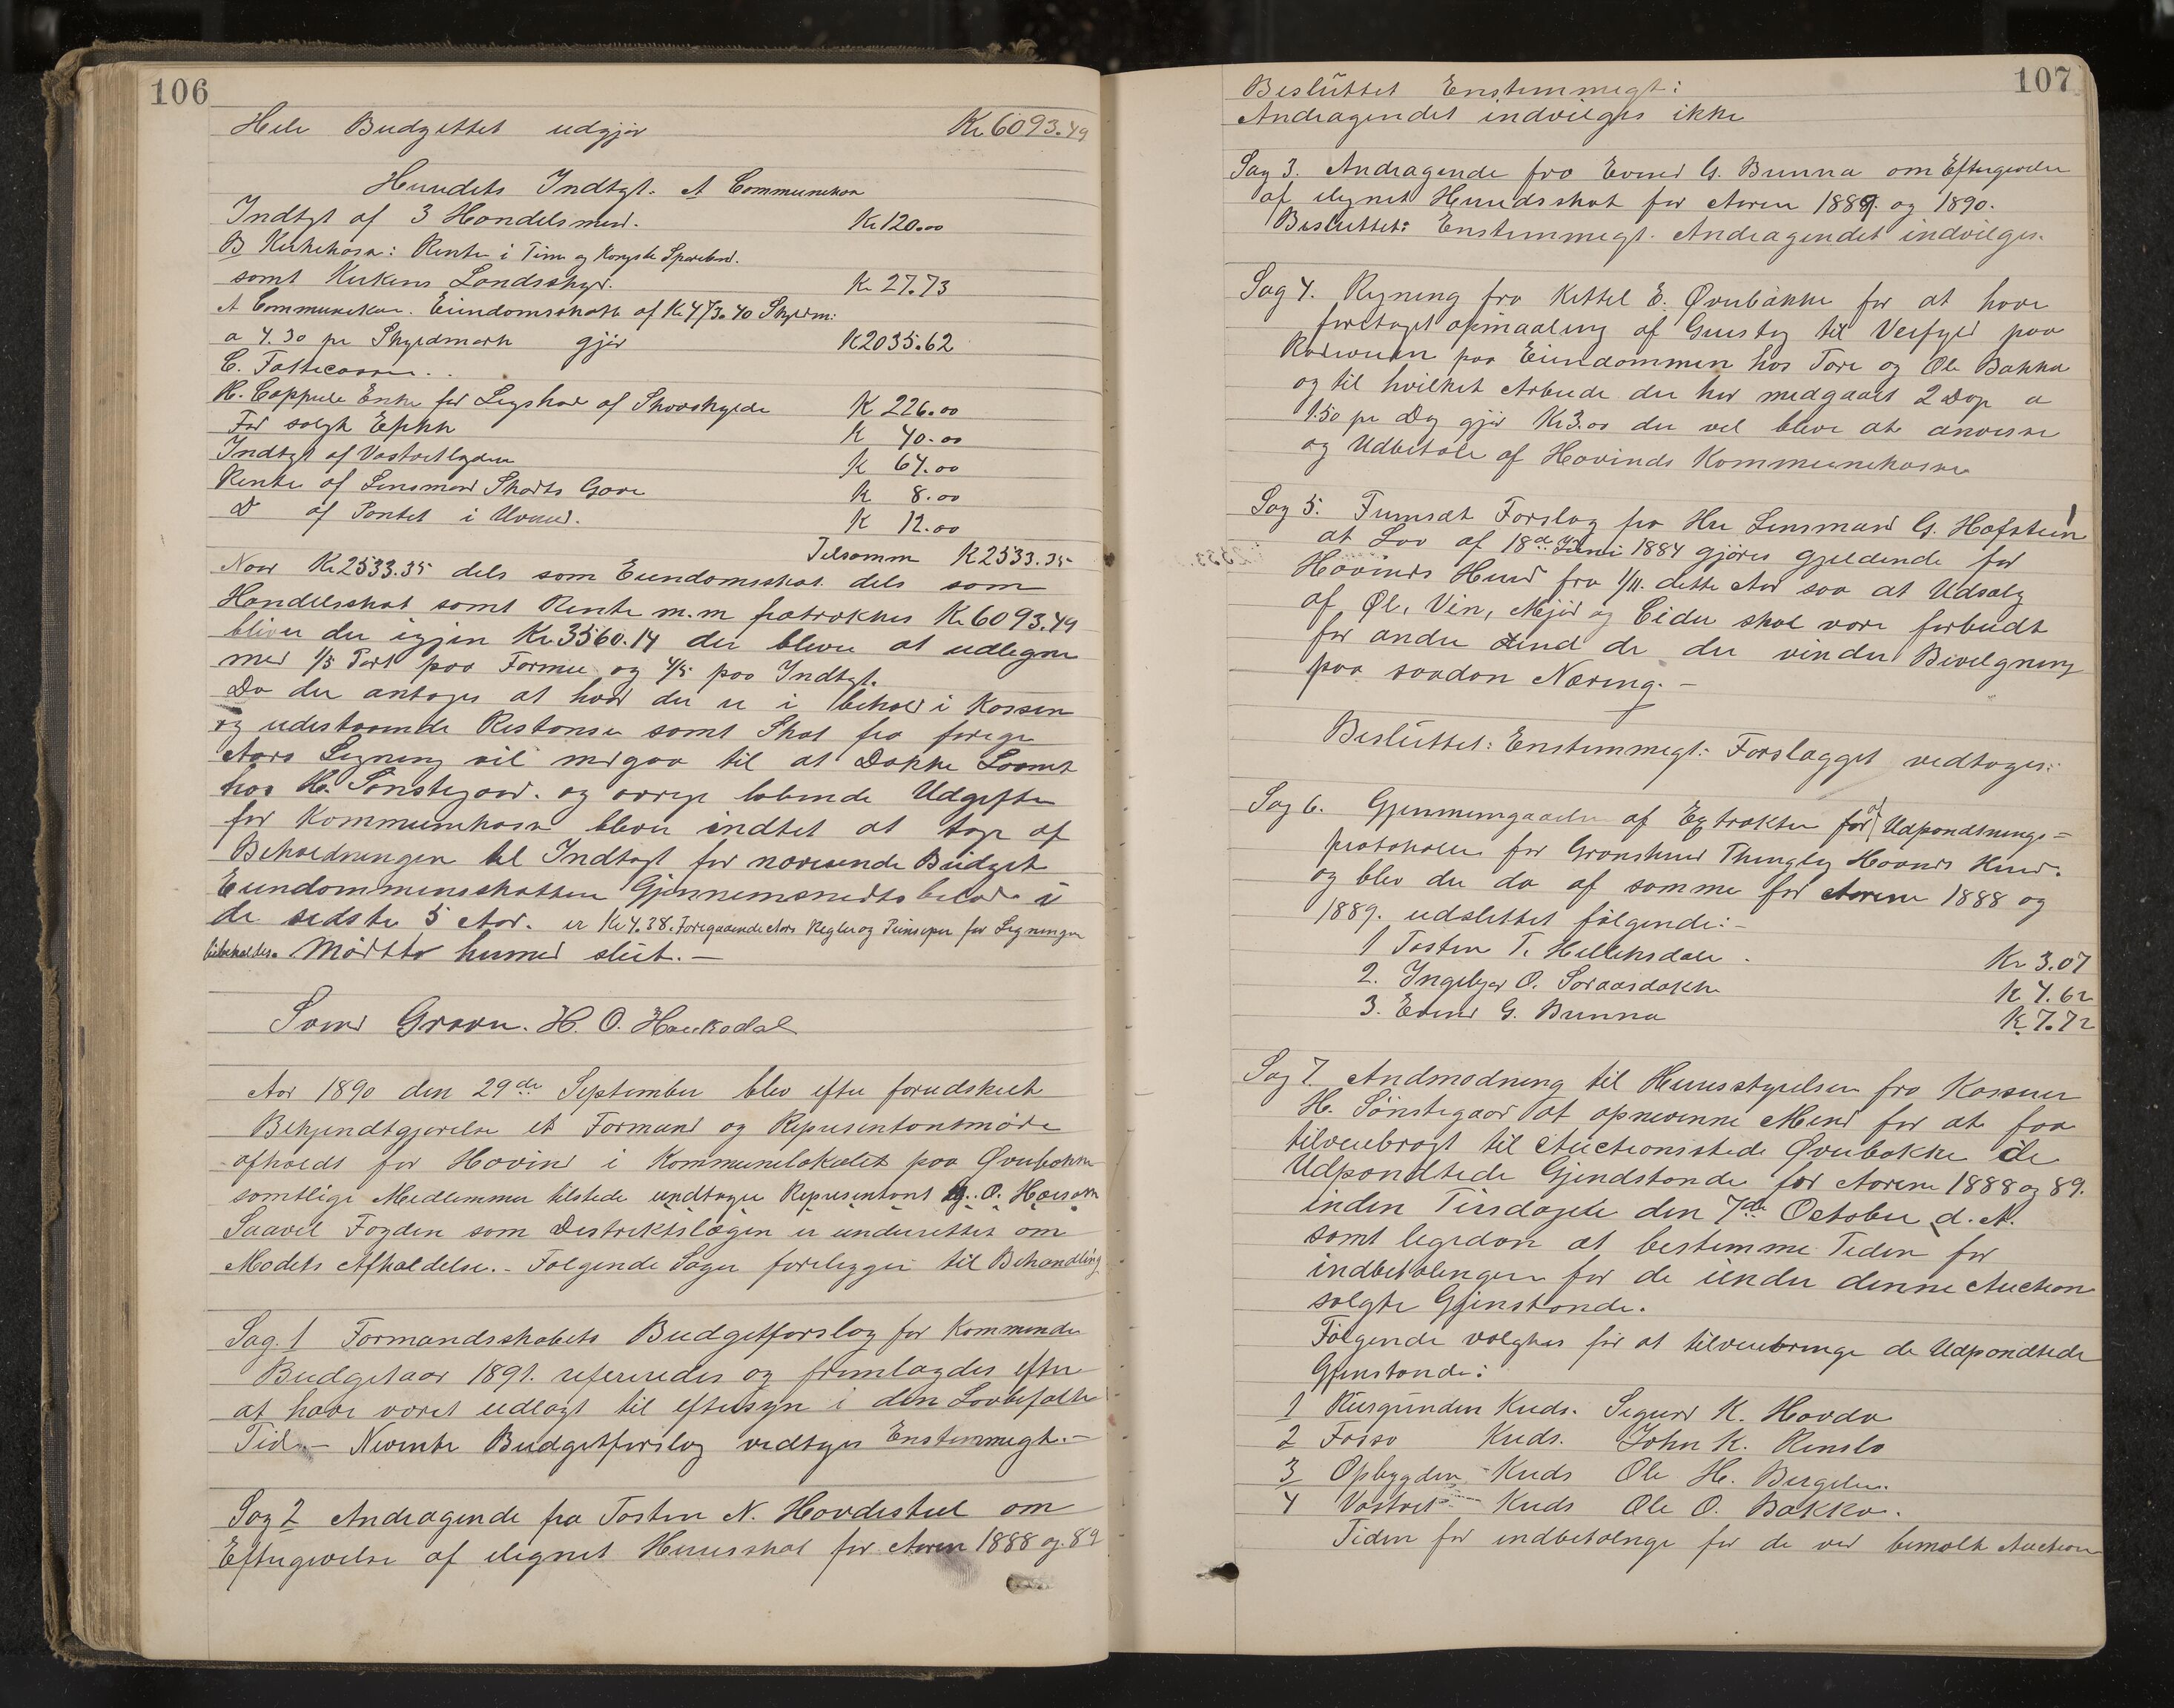 106
Hele Budgettet udgjør Kr 6093.49
Herredets Indtgt. A Communekas
Indtgt af 3 Handelsmend. Kr 120.00
B Kirkekasa: Rente i Tinn og Kongsb. Spareband.
samt Kirkens Landsskyd. Kr 27.73
A Communekas. Eiendomsskatt af Kr 473.40 Skyldm:
a 4.30 pr Skyldmark gjør K 2035.62
C. Fattecassen..
H. Cappele Enke for Legshod af Skovskylde K 226.00
For solgt Epkk K 40.00
Indtgt af Vastvetlegden K 64.00
Rente af Lensmand Skarts Gave K 8.00
D af Pantet i Uvaad. K 12.00
Tilsamm K 2533.35
Naar Kr 2533.35 dels som Eiendomsskat dels som
Handelsskat samt Rente m.m fratrækkes Kr 6093.49
bliver der igjen Kr. 3560.14 der bliver at udlegne
med 1/5 Part paa Formue og 4/5 paa Indtgt.
Da der antages at hvad der er i behold i Kassen
og udestaaende Restanser samt Skat fra forige
Aars Ligning vil medgaa til at Dække Laanet
hos H. Sønstegaard. og øvrige løbende Udgifter
for Kommunekasa bliver indtet at tage af
Beholdningen til Indtægt for nærværende Budget
Eiendommensskatten Gjennemsnedts beløb i
de sidste 5 Aar. er Kr 4.38. Foregaaende Aars Regler og Prinseper for Ligningen
bibeholdes. Mødet hermed slut. –
Sond Graver. H. O. Haukadal
Aar 1890 den 29de September blev efter forudskeet
Bekjendtgjørelse et Formand og Repræsentantmøde
afholdt for Hovin i Kommunelokalet paa Øvrebøkka
samtlige Medlemmer tilstede undtagen Representant G. O. Haasarn
Saavel Fogden som Destriktslægen er underettet om
Mødets Afholdelse. – Følgende Sager foreligger til Behandling
Sag. 1 Formandsskabets Budgetforslag for kommende
Budgetaar 1891. refereredes og fremlagdes efter
at have været udlagt til eftersyn i den Lovbefalte
Tid. – Nævnte Budgetforslag vedtages Enstemmegt. –
Sag 2 Andragende fra Tosten N. Hovdestul om
Eftergivelse af elignet Herredsskat for Aaren 1888 og 89
107
Besluttet Enstemmegt:
Andragendet indvilges ikke
Sag 3. Andragende fra Evend G. Bunna om Eftergivelse
af elignet Herredsskat for Aaren 1889. og 1890.
Besluttet: Enstemmegt. Andragendet indvilges.
Sag 4. Regning fra Kettel E. Øvrebakke for at have
foretaget opmaaling af Grustag til Veifyld paa
paa Eiendommen hos Tore og Ole Bakka
og til hvilket Arbeide der har medgaaet 2 Dage a
1.50 pr Dag gjør Kr 3.00 der vel blive at anvise
og Udbetale af Hovinds Kommunekasse
Sag 5. Fremsat Forslag fra Hr Lensmand G. Hofstein
at Lov af 18de Juni 1884 gjøres gjeldende for
Hovinds Herred fra 1/11. dette Aar saa at Udsalg
af Øl, Vin, Mjød og Cider skal være forbudt
for andre end de der vinder Bevilgning
paa saadan Næring. –
Besluttet: Enstemmegt: Forslagget vedtages:
Sag 6. Gjennemgaaelse af Extrakter for af Udpandtnings-
protokollen for Gransherred Thinglag Hovinds Herred.
og blev der da af samme for Aarene 1888 og
1889. udslettet følgende: –
1 Tosten T. Helleksdale. Kr 3.07
2. Ingebjør O. Soraasdokke K 4.62
3. Evend G. Bunna K 7.72
Sag 7. Andmodning til Herredsstyrelsen fra Kasserer
H. Sønstegaard at opnevnne Mend for at faa
tilveiebragt til Auctionsstede Øvrebøkke de
Udpandtede Gjendstande for Aarene 1888 og 89.
inden Tirsdagen den 7de October d. A.
samt legedan at bestemme Tiden for
indbetalingen for de under denne Auction
solgte Gjenstande.
Følgende valgtes for at tilveiebringe de Udpandtede
Gjenstande:
1 Rusgrunden Kreds. Sigurd K. Hovda
2 Fosso Kreds. John K. Rinslo
3 Opbygden Kreds Ole H. Bergelen.
4 Vastvet Kreds Ole O. Bakka.
Tiden for indbetalinge for de ved bemælte Auction